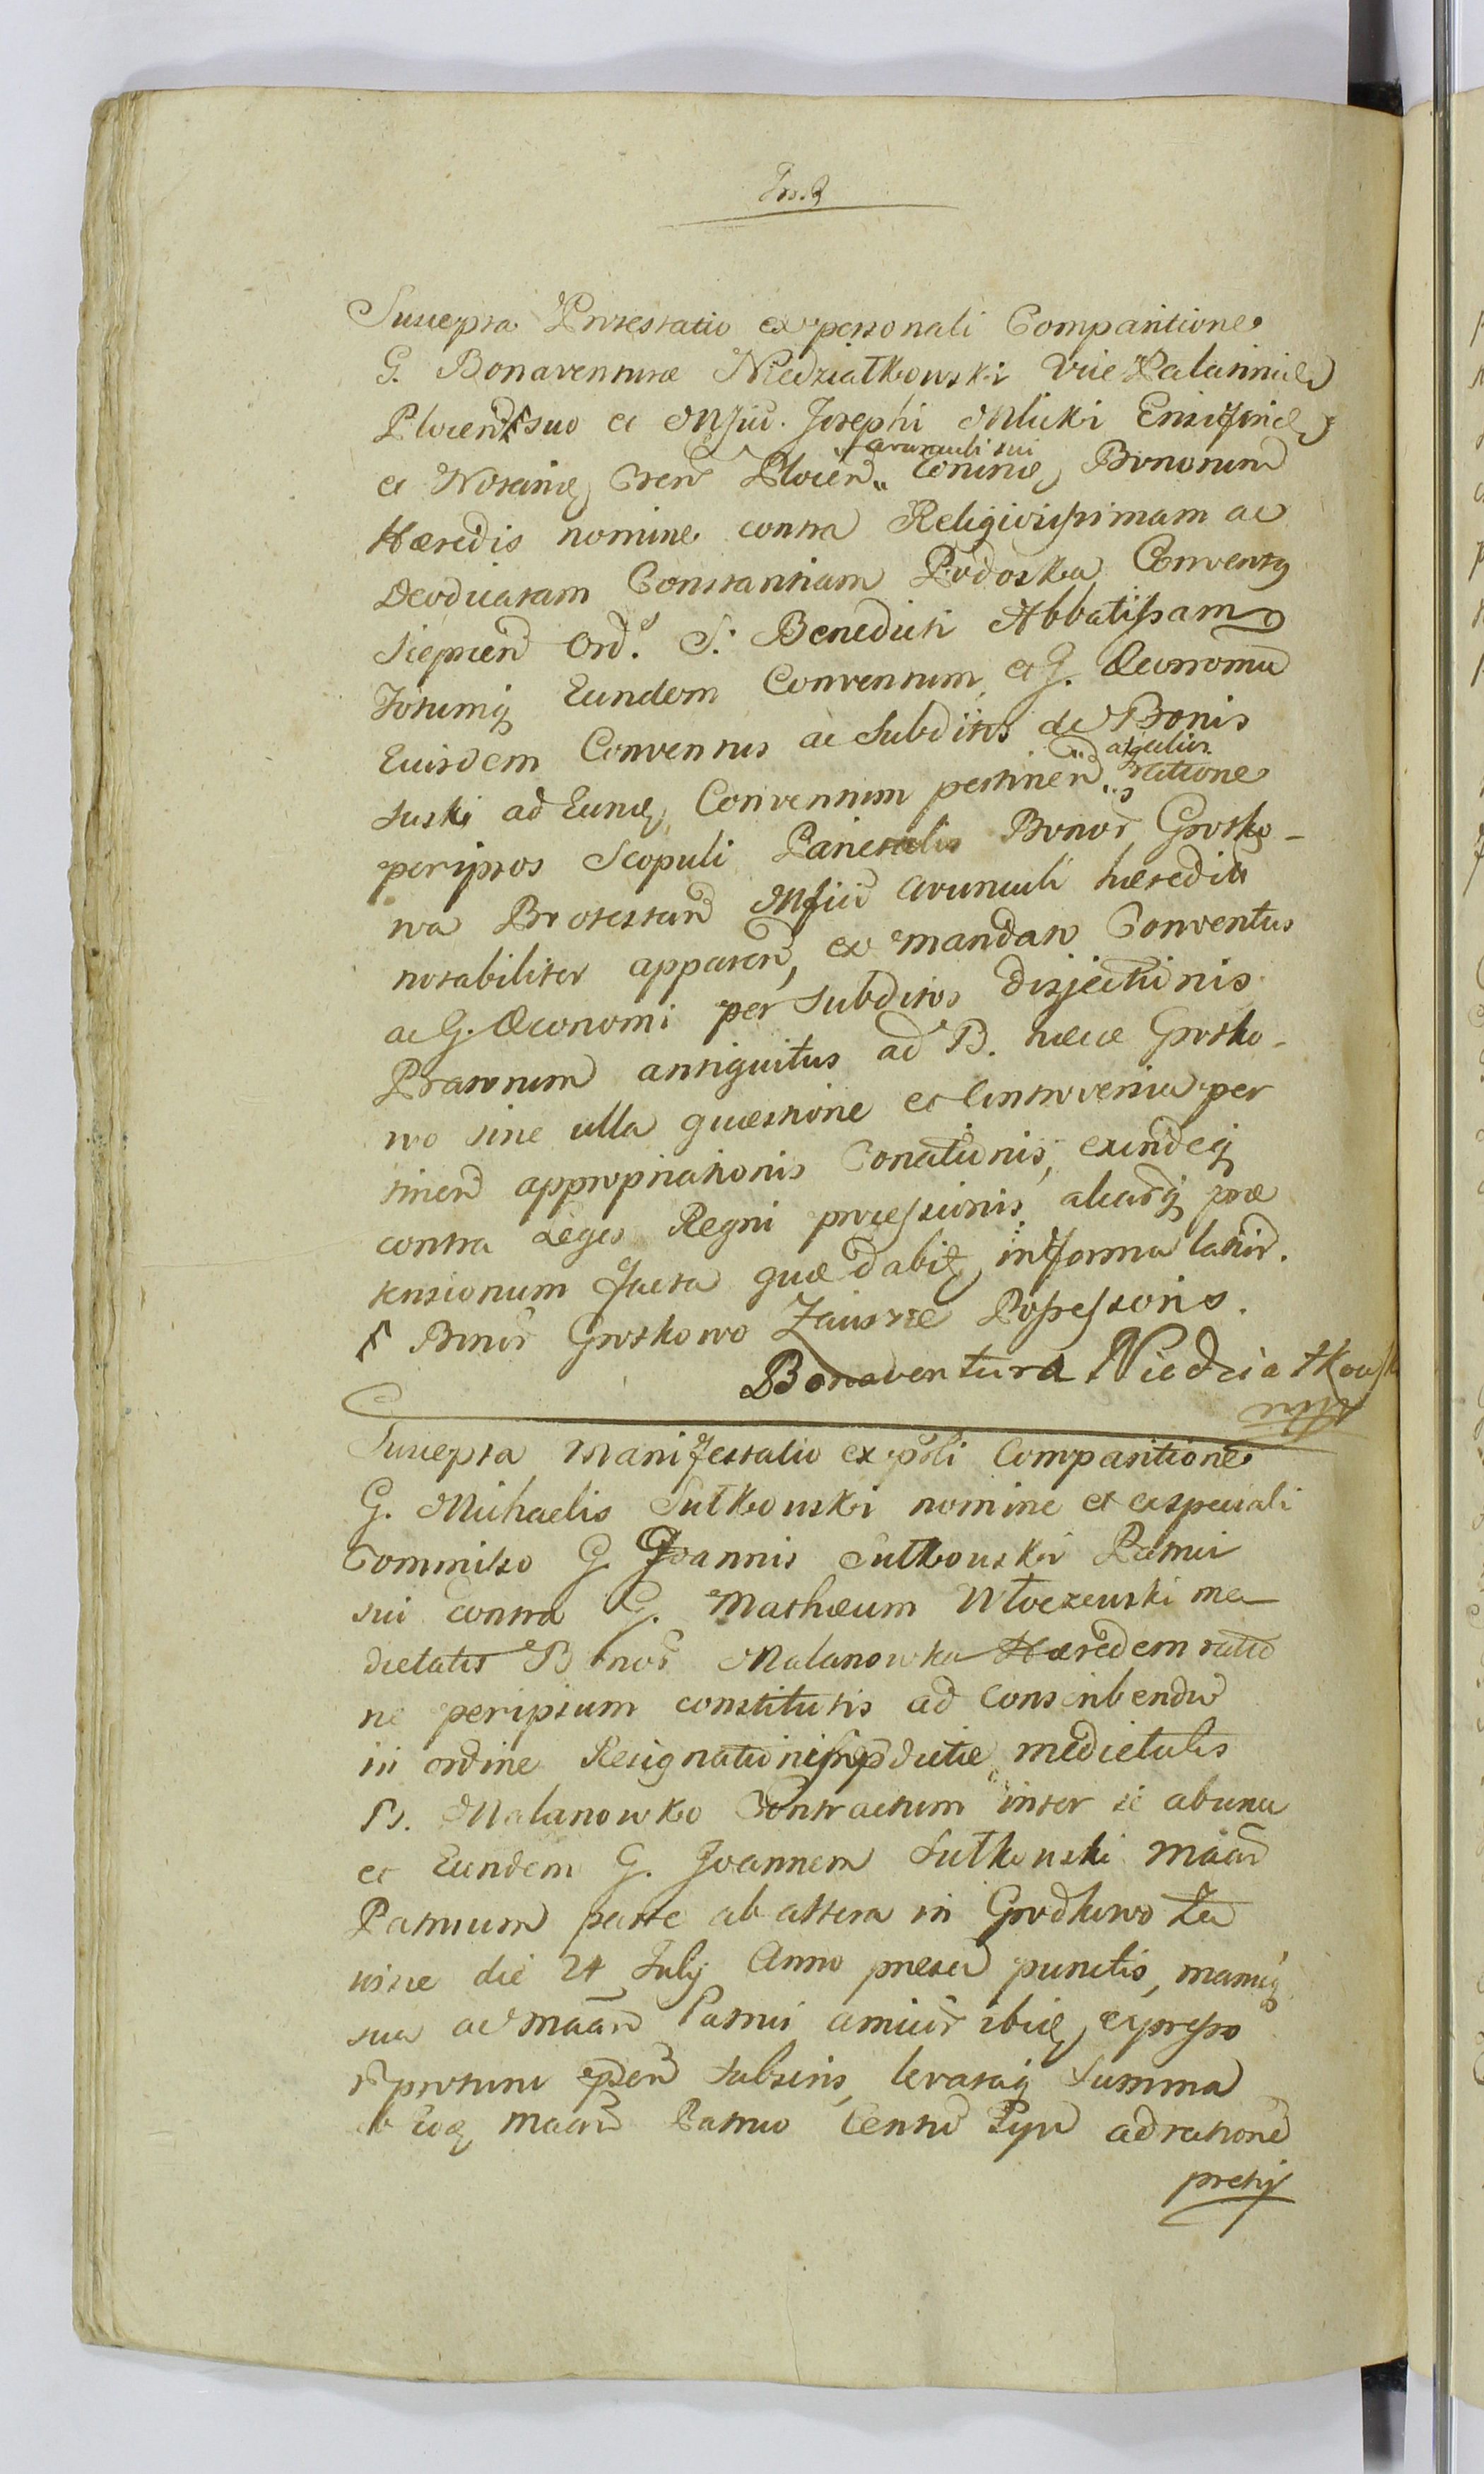 Suscepta Protestatio ex personali Comparitione
G. Bonaventuræ Niedziałkowski Vice Palatini
Plocen suo et Mfici Josephi Mlicki Ensiferi
et Notarii Plocen avunculi sui Bonorum
Hæredis nomine contra Religiosissimam ac
Deodicatam Constantiam Podoska Conventus
Sierpcen Ord. S. Benedicti Abbatissam
Totumq Eundem Conventum et G. Œconomu
Eiusdem Conventus ac Subditos de Bonis
Suski ad Eund Conventum pertinen ratione
per ipsos Scopuli Parietalis Bonor Grotko-
wa Protestan Mfici Avunculi hæredit
notabiliter apparen, ex mandato Conventus
ac G. Œconomi per Subditos disjectionis
Pratorum antiquitus ad B. hæc Grotko-
wo sine ulla quæstione et Controversia per
tinen appropriationis Conationis, exindeq
contra Leges Regni processionis, aliarq præ
tensionum facta quæ dabit in forma latior.
Bonor Grotkowo Zawsze Possessoris.
Bonaventura Niedziałkowski
mpp
Suscepta Manifestatio ex psli Comparitione
G. Michaelis Sutkowski nomine et ex speciali
Commisso G Joannis Sutkowski Patrui
sui contra G. Mathæum Włoczewski me
dietatis Bonor Malanowko Hæredem ratio
ne per ipsum constitutis ad Conscribendu
in ordine Resignationis pdictæ medietatis
B. Malanowko Contractum inter se ab una
et Eundem G. Joannem Sutkowski maan
Patruum parte ab altera in Grodkowo Za
wisze die 24 July Anno præsen punctis, manuq
sua ac maan Patrui amicor ibid expresso
subscris, levataq Summa
ab eod maan Patruo Centu ad rationem
pretij